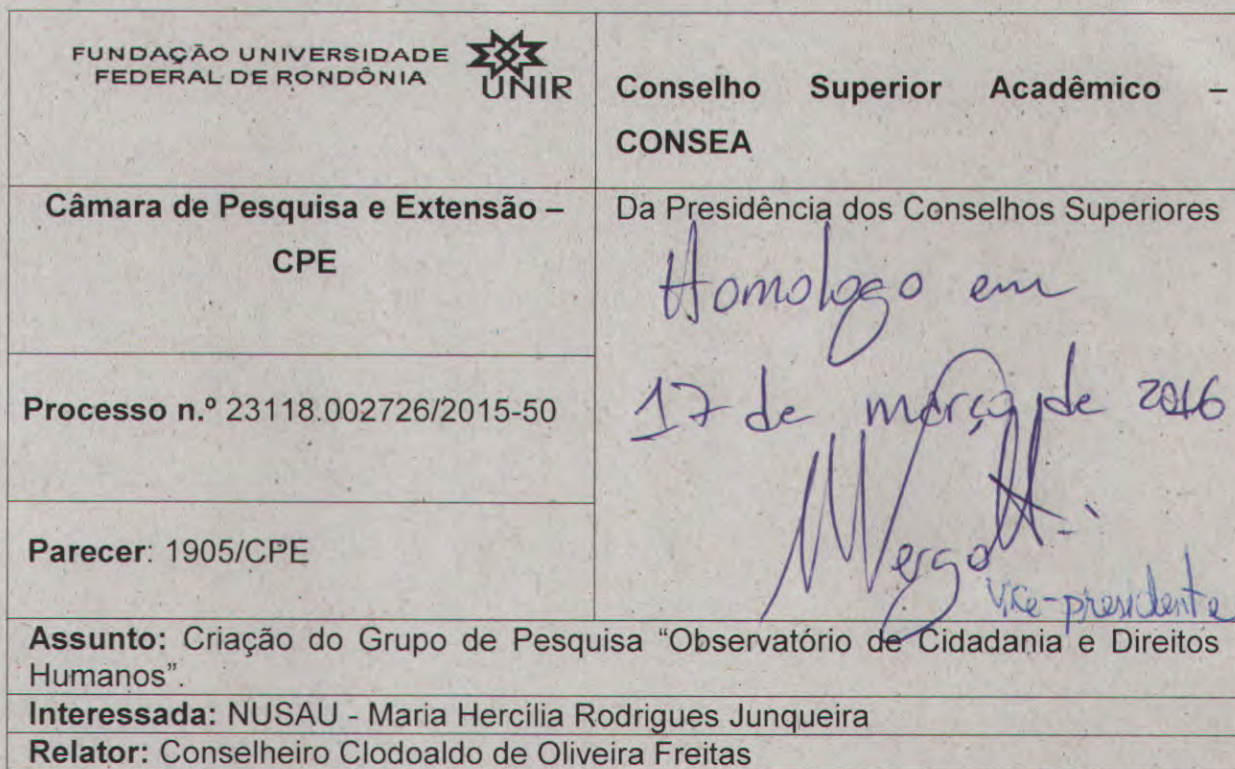 FUNDAÇÃO UNIVERSIDADE
FEDERAL DE RONDÔNIA
UNIR
Conselho Superior Acadêmico –
CONSEA
Câmara de Pesquisa e Extensão –
CPE
Da Presidência dos Conselhos Superiores
Homologo em
17 de março de 2016
vice-presidente
Processo n.º 23118.002726/2015-50
Parecer: 1905/CPE
Assunto: Criação do Grupo de Pesquisa “Observatório de Cidadania e Direitos
Humanos”.
Interessada: NUSAU - Maria Hercília Rodrigues Junqueira
Relator: Conselheiro Clodoaldo de Oliveira Freitas